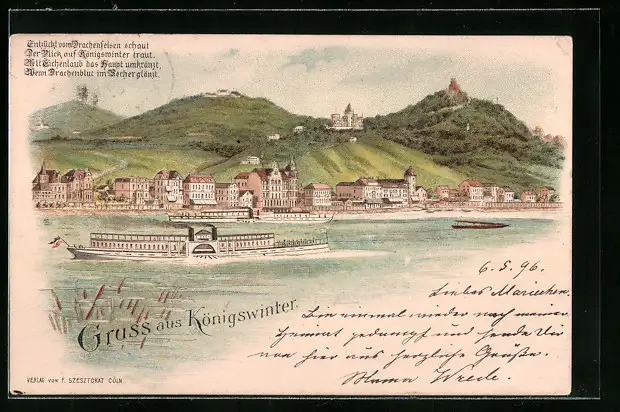 Entzückt vom Drachenfelsen schaut
Der Blick auf Königswinter traut.
Mit Eichenlaub das Haupt umkränzt,
Wenn Drachenblut im Becher glänzt.
6.5.96.
Liebes Mariechen.
Bin einmal wieder nach meiner
Heimat gedampft und sende Dir
von hier aus herzliche Grüße.
Mama Wrede.
Gruss aus Königswinter.
VERLAG VON F. SZESZTOKAT CÖLN